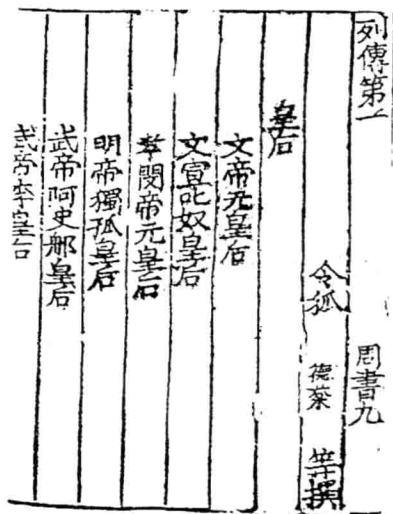 列傳第一 周書九
令狐 德棻 等撰
皇后
文帝元皇后
文宣叱奴皇后
孝閔帝元皇后
明帝獨孤皇后
武帝阿史那皇后
武帝李皇后